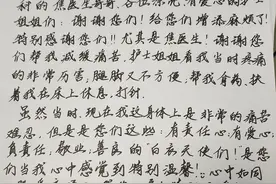 科的焦医生、各位领导、有爱心的护士
姐们：谢谢您们！给您们增添麻烦了！
特别感谢您们!! 尤其是焦医生！谢谢您
们帮我减缓痛苦，护士姐姐看我当时疼痛
的非常厉害，腿脚又不方便，帮我背药、扶
着我在床上休息、打针。
虽然当时、现在我这身体上是非常的痛苦
难忍。但是是您们这些：有责任心、有爱心、
真责任、敬业、善良的"白衣天使们"！是您
们当我心中感觉到特别温馨！心中如同